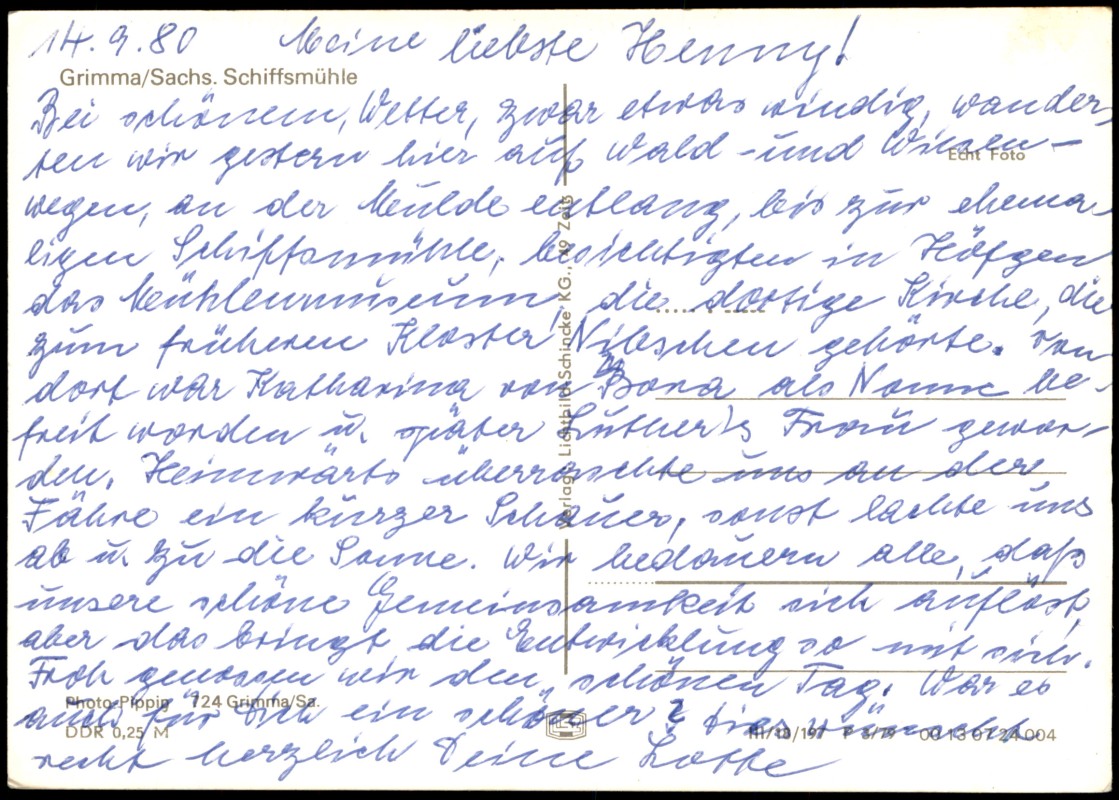 14.9.80 Meine liebste Henny!
Grimma/Sachs. Schiffsmühle
Bei schönem Wetter, zwar etwas windig, wander-
ten wir gestern hier auf Wald- und Wiesen-
Echt Foto
wegen, an der Mulde entlang, bis zur ehema-
ligen Schiffsmühle, besichtigten in Höfgen
das Mühlenmuseum, die dortige Kirche, die
zum früheren Kloster Nibschen gehörte. Von
dort war Katharina von Bora als Nonne be-
freit worden u. später Luther's Frau gewor-
den. Heimwärts überraschte uns an der
Fähre ein kurzer Schauer, sonst lachte uns
ab u. zu die Sonne. Wir bedauern alle, daß
unsere schöne Gemeinsamkeit sich auflöst,
aber das bringt die Entwicklung so mit sich.
Froh genossen wir den schönen Tag. War es
auch für Dich ein schöner? Dies wünscht
recht herzlich Deine Lotte
Verlag: Lichtbild-Schincke KG., 49 Zeitz
Photo-Pippig 724 Grimma/Sa.
DDR 0,25 M
III/18/197 00 13 07 24 004